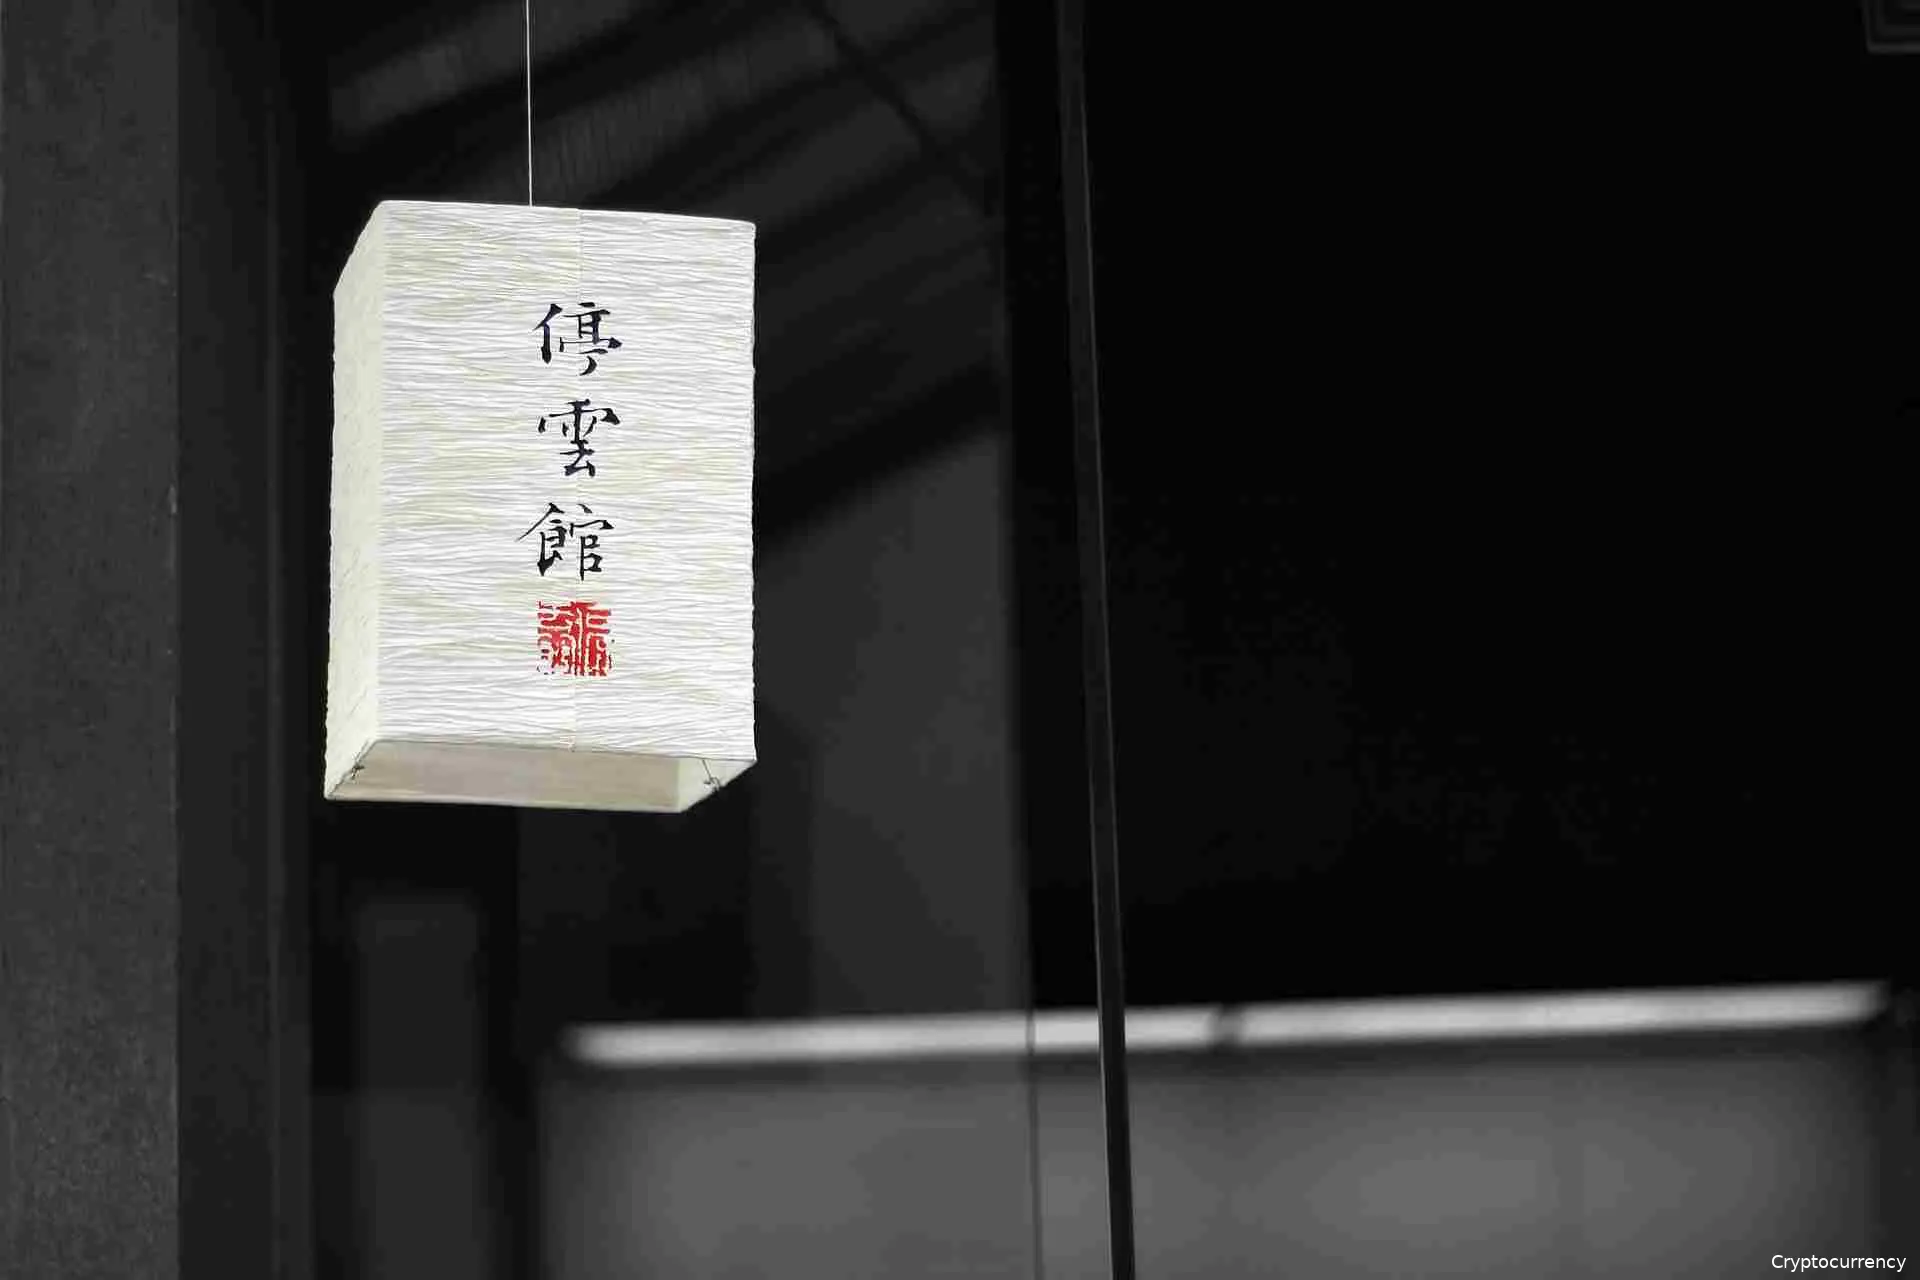 停雲館
Cryptocurrency